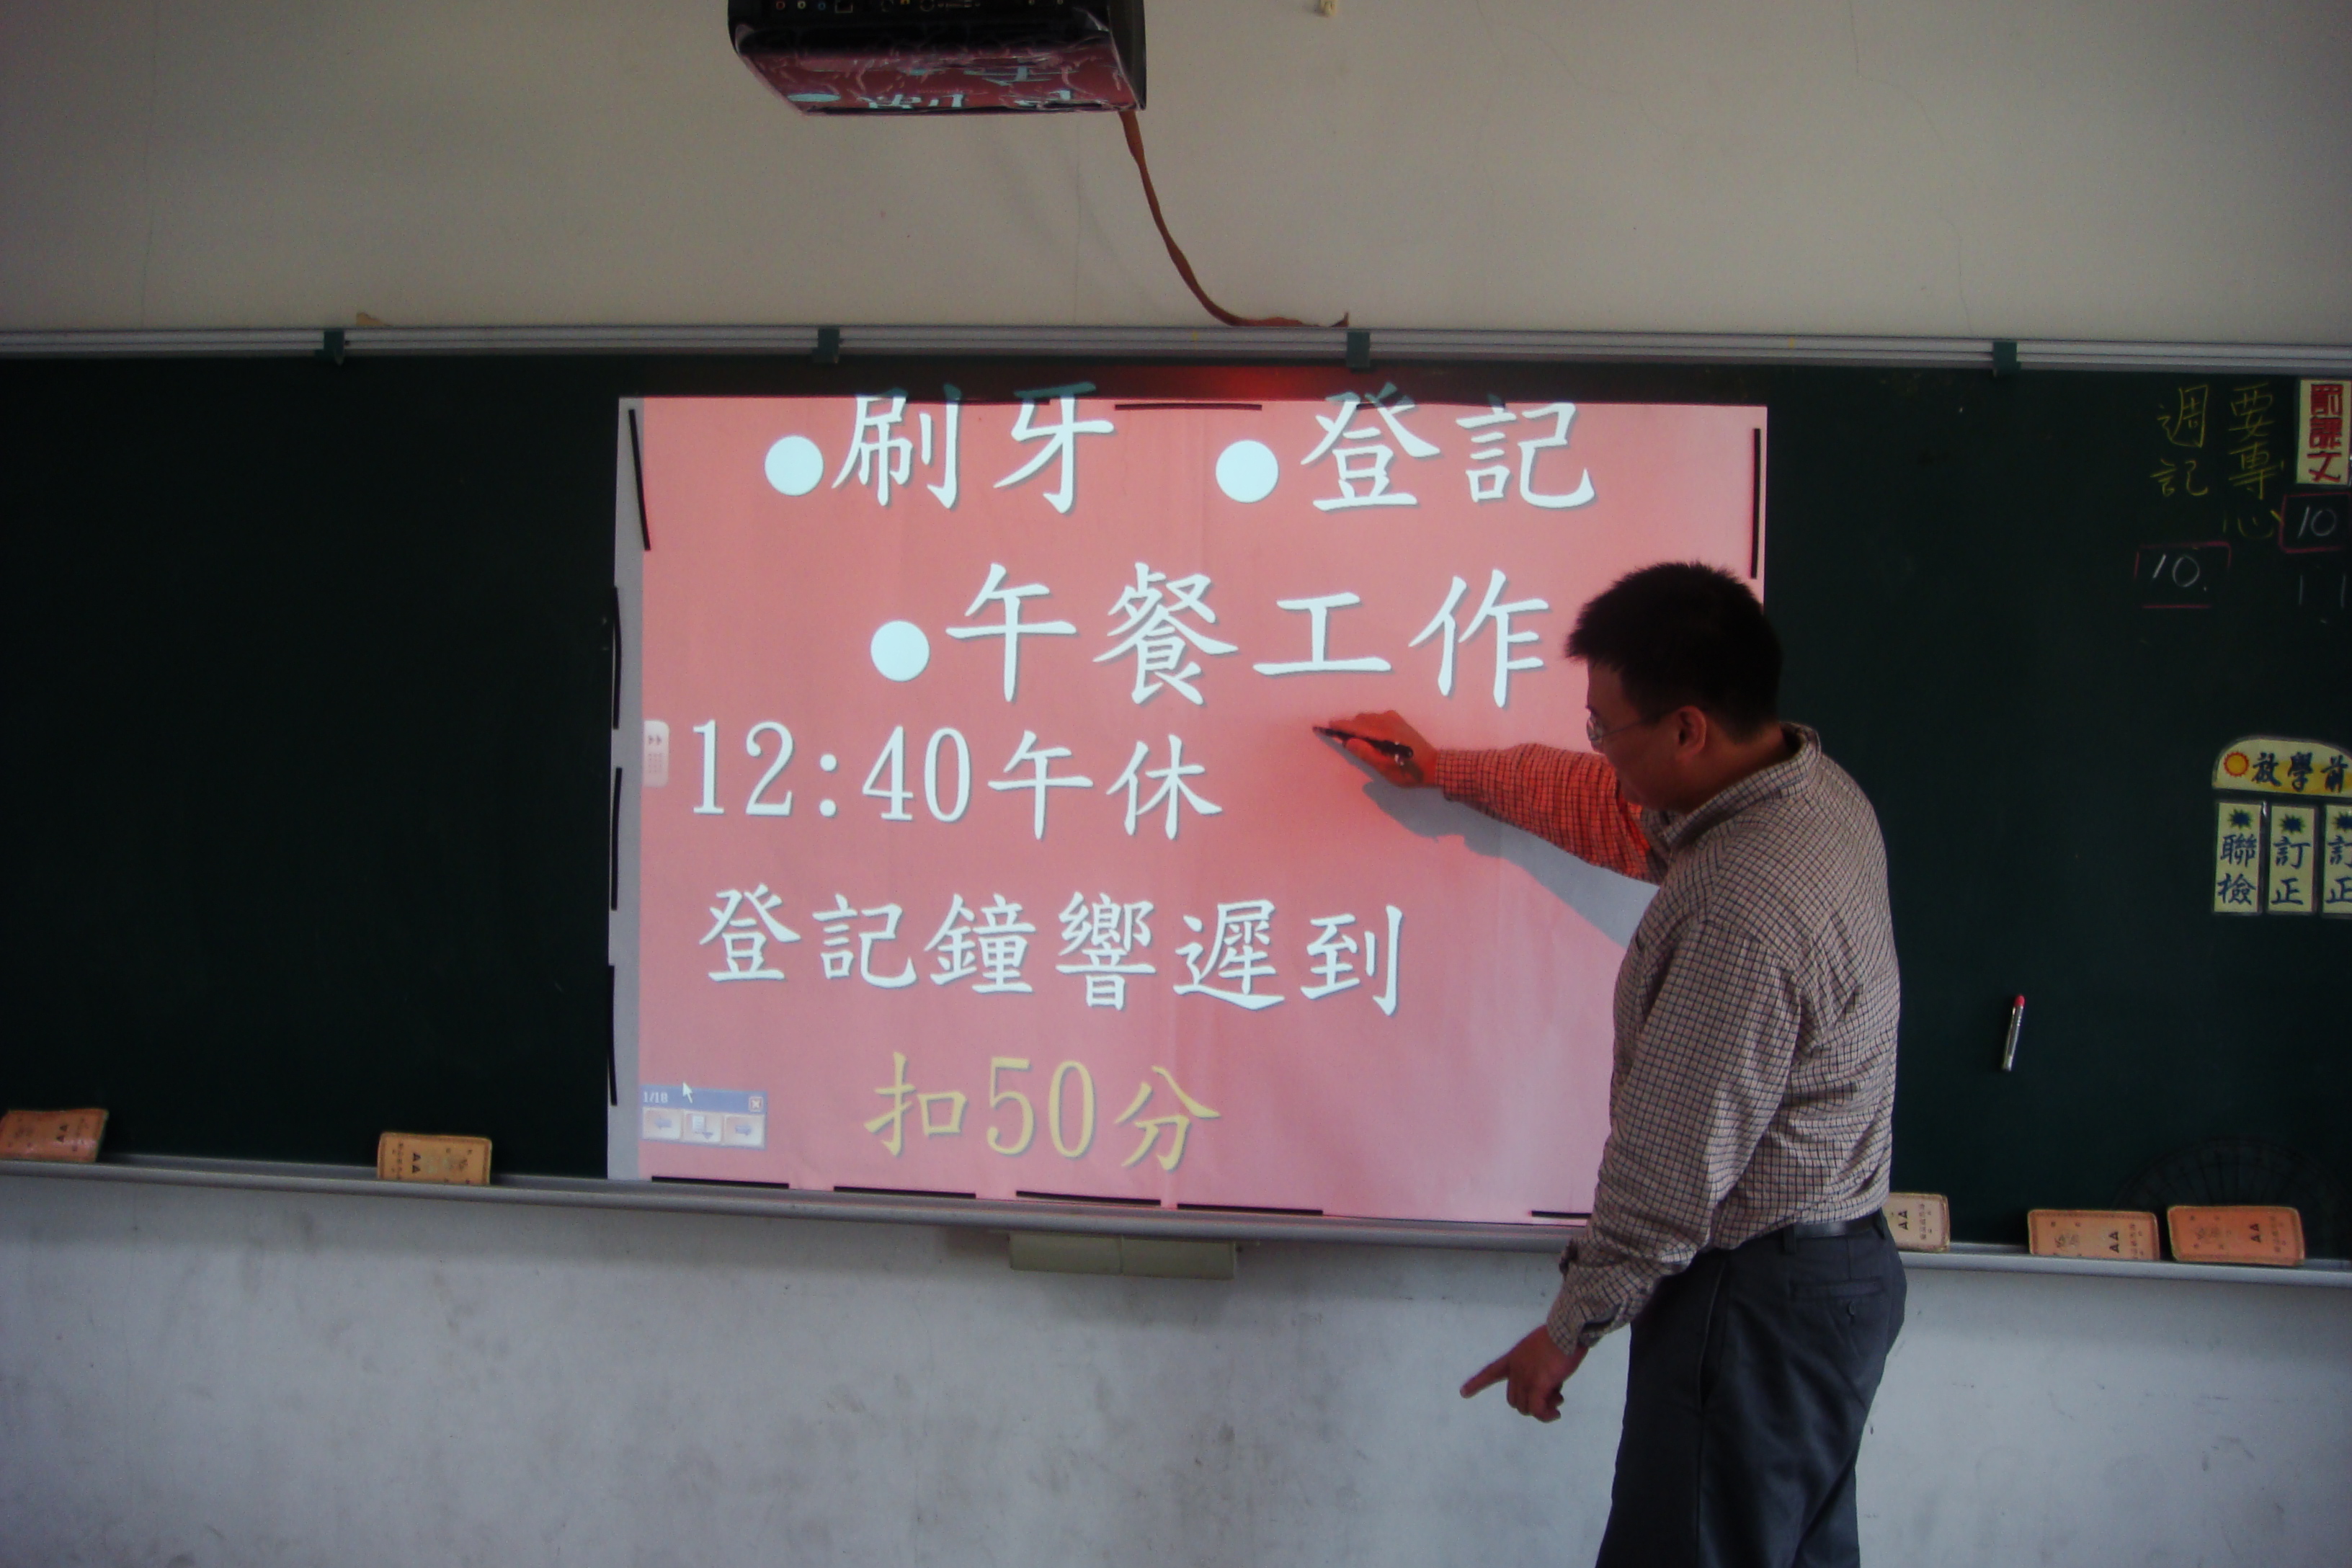 ●刷牙 ●登記
●午餐工作
12:40午休
登記鐘響遲到
扣50分
1/18
要專心
週記
10
10.
11
放學前
聯檢
訂正
訂正